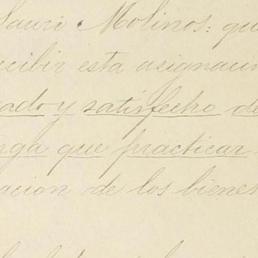 Sauri Molinos: qu
cibir esta asignaci
ado y satisfecho de
nga que practicar
acion de los bienes